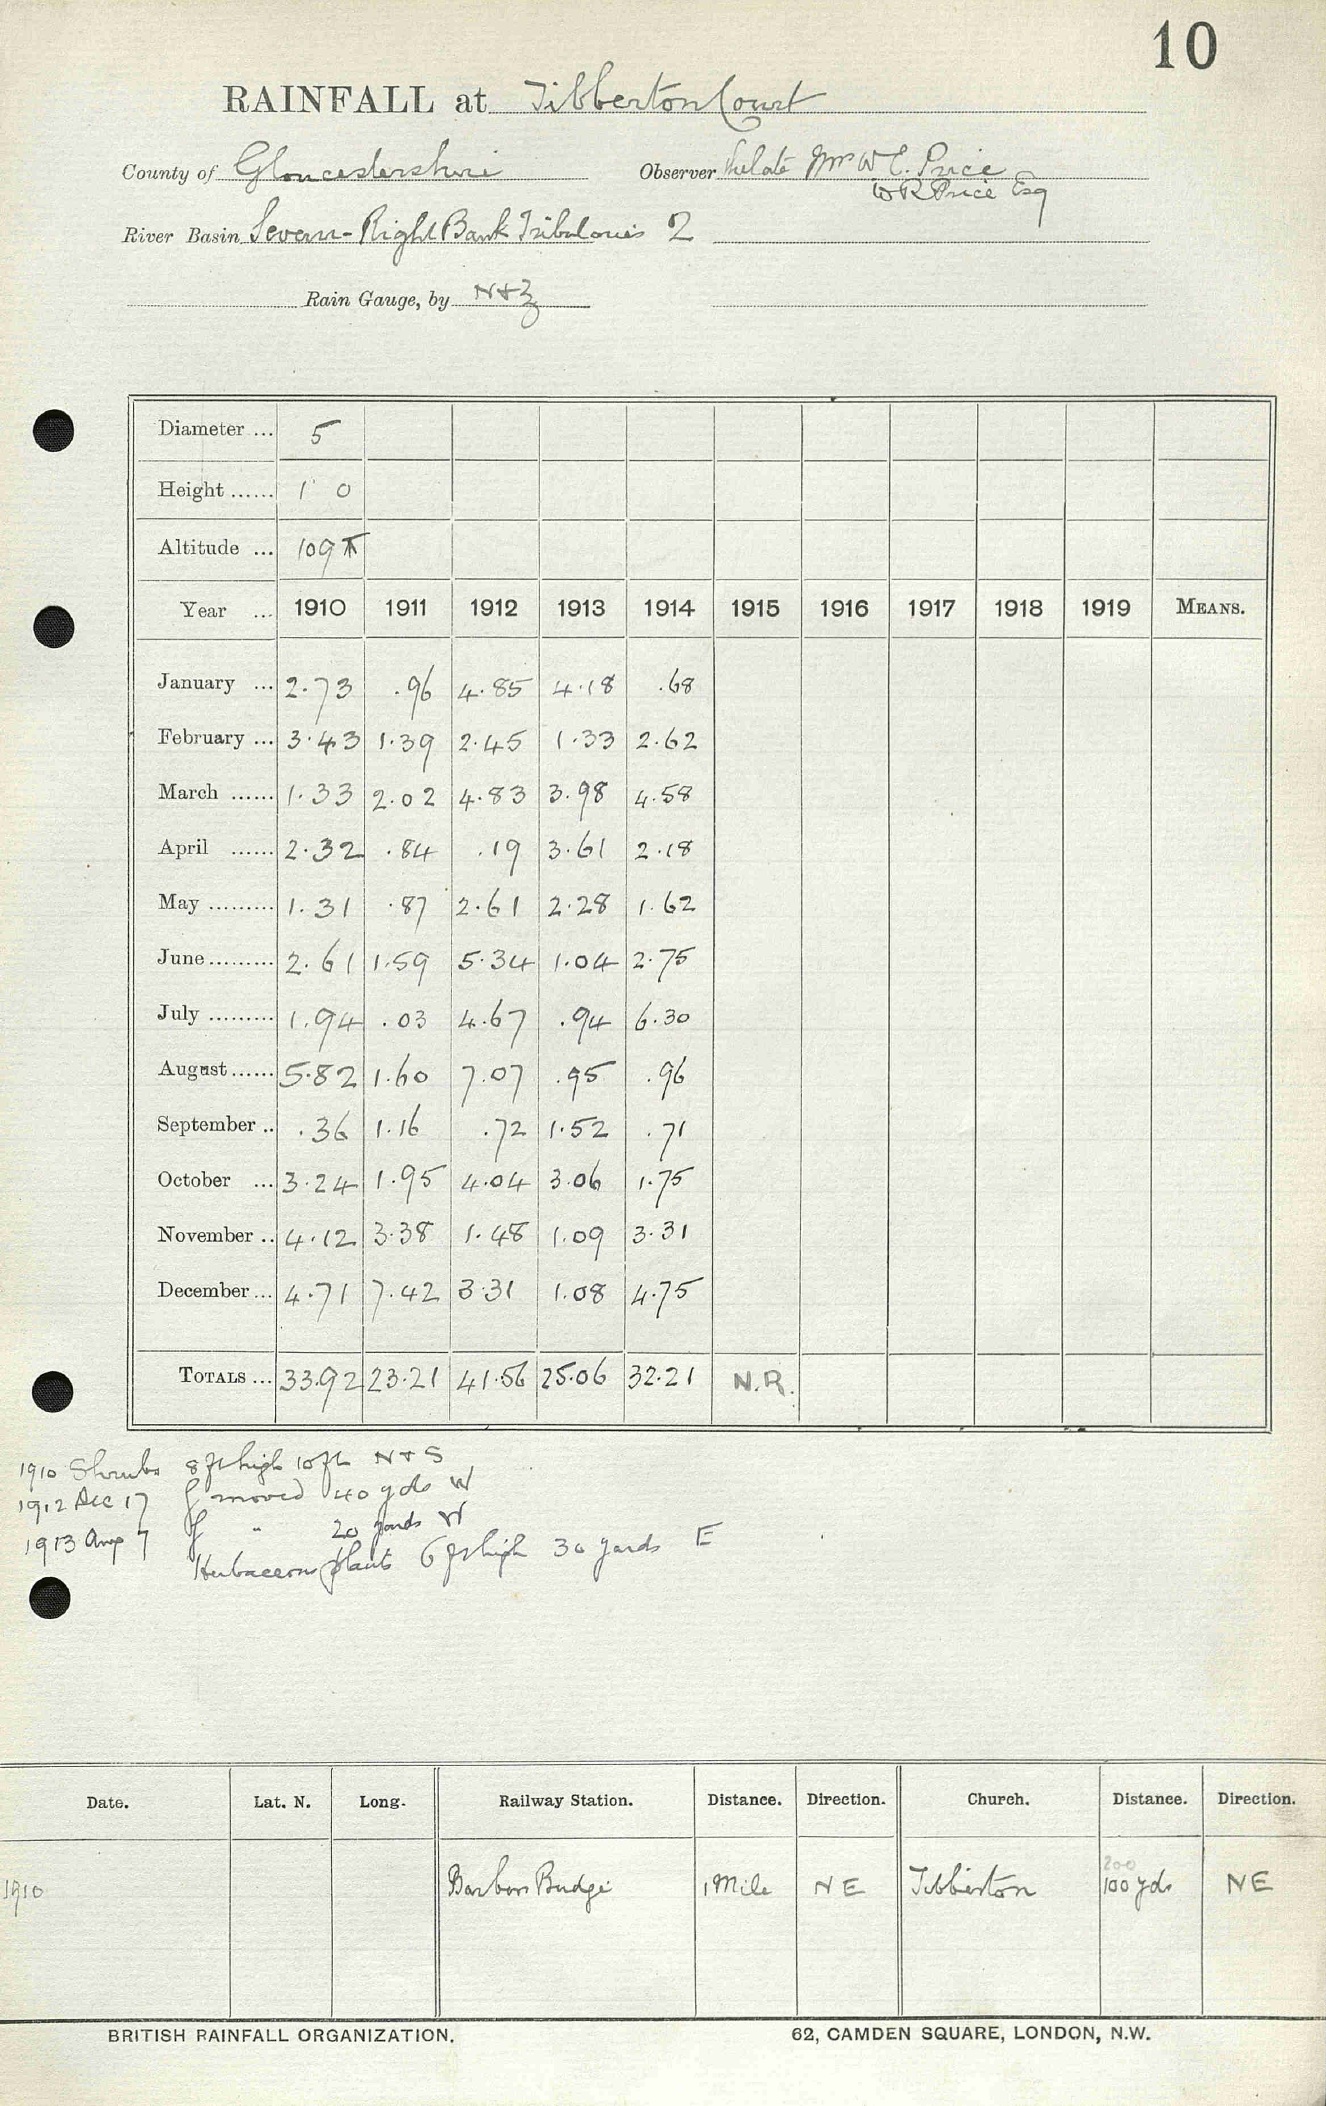 10
RAINFALL at Tibberton Court
County of Gloucestershire Observer The late Mrs W C. Price
W R Price Esq
River Basin Severn - Right Bank Tributaries 2
Rain Gauge, by N+Z
Diameter ... 5
Height ...... 1 0
Altitude ... 109
Year ... 1910 1911 1912 1913 1914 1915 1916 1917 1918 1919 MEANS.
January ... 2.73 .96 4.85 4.18 .68
February ... 3.43 1.39 2.45 1.33 2.62
March ...... 1.33 2.02 4.83 3.98 4.58
April ...... 2.32 .84 .19 3.61 2.18
May ......... 1.31 .87 2.61 2.28 1.62
June ......... 2.61 1.59 5.34 1.04 2.75
July ......... 1.94 .03 4.67 .94 6.30
August ...... 5.82 1.60 7.07 .95 .96
September .. .36 1.16 .72 1.52 .71
October ... 3.24 1.95 4.04 3.06 1.75
November .. 4.12 3.38 1.48 1.09 3.31
December ... 4.71 7.42 3.31 1.08 4.75
TOTALS ... 33.92 23.21 41.56 25.06 32.21 N.R.
1910 Shrubs 8 ft high 10 ft N + S
1912 Dec 17 g moved 40 yds W
1913 Aug 7 g " 20 yards W
Herbaceous plants 6 ft high 30 yards E
Date. Lat. N. Long. Railway Station. Distance. Direction. Church. Distance. Direction.
200
1910 Barbers Bridge 1 Mile N E Tibberton 100 yds NE
BRITISH RAINFALL ORGANIZATION. 62, CAMDEN SQUARE, LONDON, N.W.